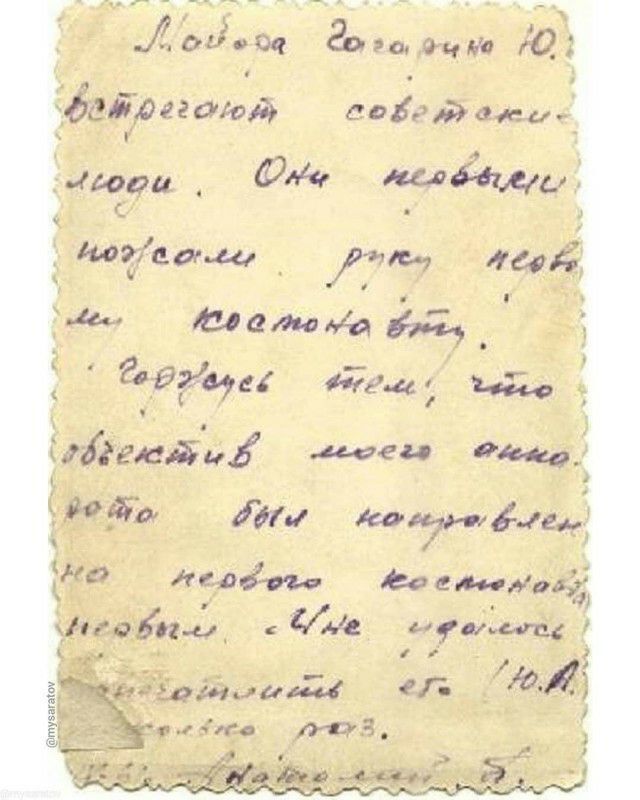 Майора Гагарина Ю.
встречают советские
люди. Они первыми
пожали руку перво
му космонавту.
Горжусь тем, что
объектив моего аппа-
рата был направлен
на первого космонавта
первым. Мне удалось
запечатлить его (Ю.А.
сколько раз.
Анатолий
@mysaratov
@mysaratov